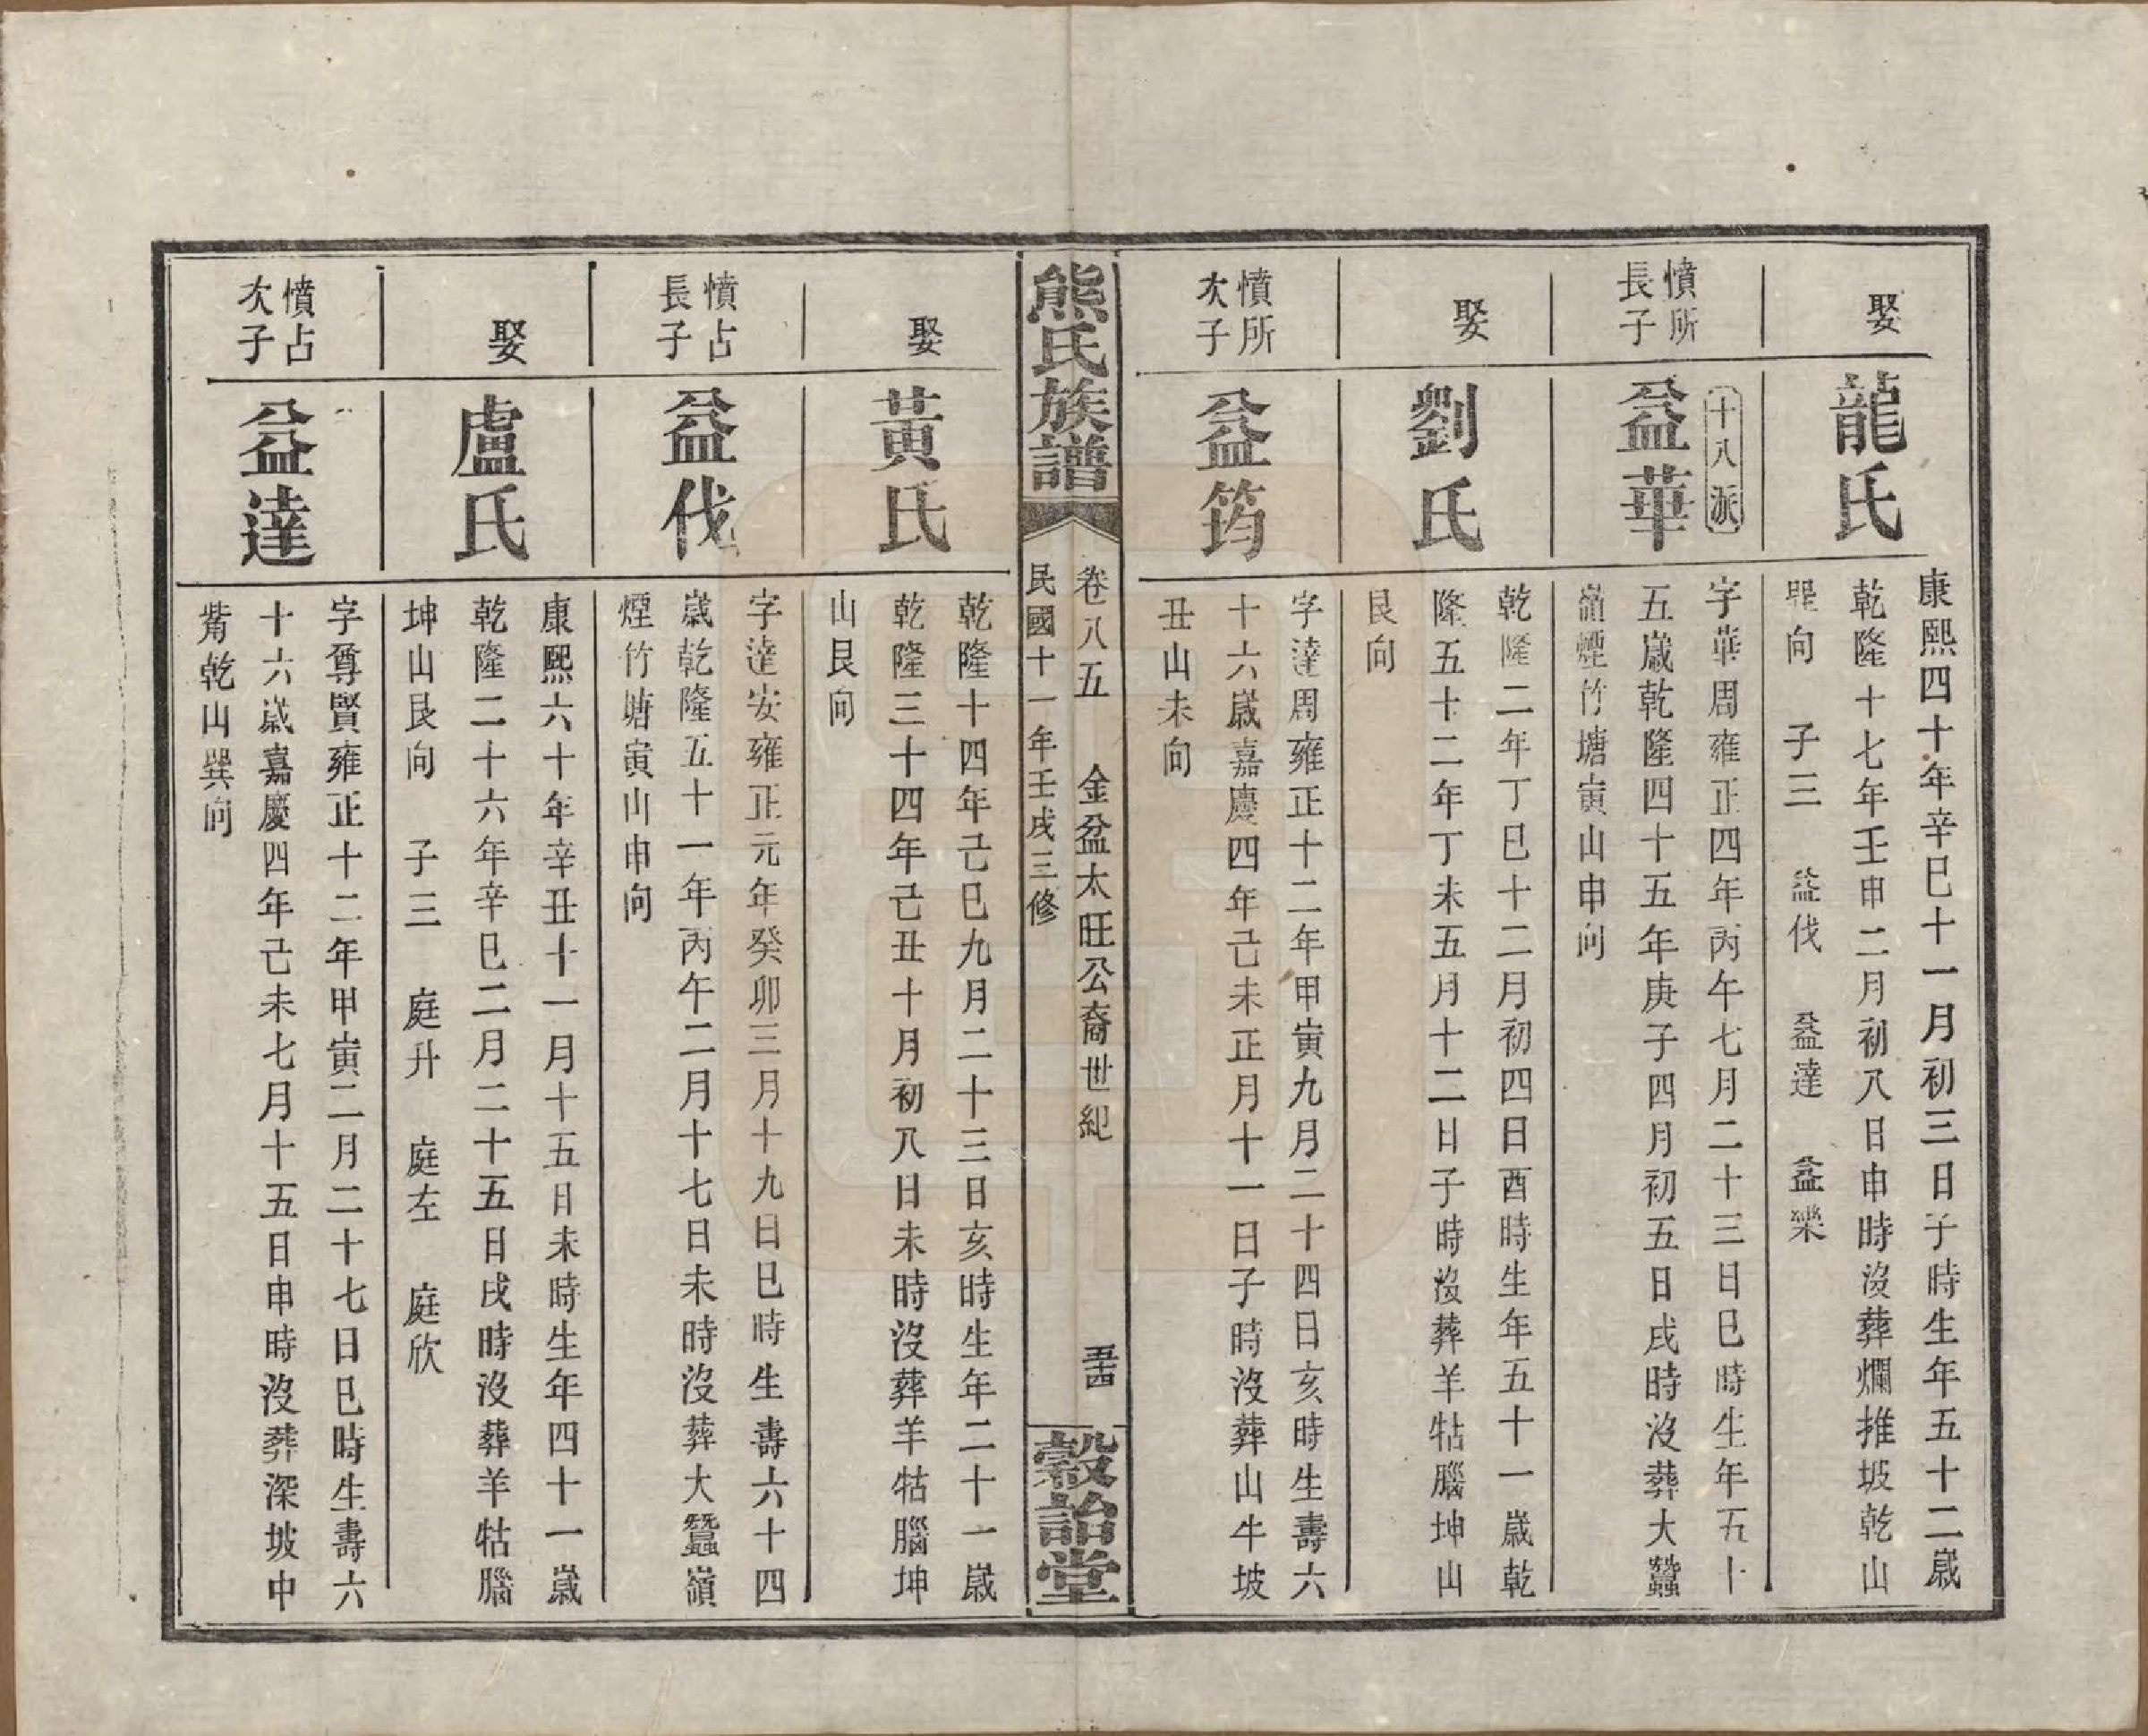 娶
龍氏
康熙四十年辛巳十一月初三日子時生年五十二歲
乾隆十七年壬申二月初八日申時沒葬爛推坡乾山
巽向　子三　益伐　益達　益樂
憤所
長子
十八派
益華
字華周雍正四年丙午七月二十三日巳時生年五十
五歲乾隆四十五年庚子四月初五日戌時沒葬大蠶
嶺煙竹塘寅山申向
娶
劉氏
乾隆二年丁巳十二月初四日酉時生年五十一歲乾
隆五十二年丁未五月十二日子時沒葬羊牯腦坤山
艮向
憤所
次子
益筠
字達周雍正十二年甲寅九月二十四日亥時生壽六
十六歲嘉慶四年己未正月十一日子時沒葬山牛坡
丑山未向
熊氏族譜
卷八五　金盆太旺公裔世紀　五十四
民國十一年壬戌三修
穀詒堂
娶
黃氏
乾隆十四年己巳九月二十三日亥時生年二十一歲
乾隆三十四年己丑十月初八日未時沒葬羊牯腦坤
山艮向
憤占
長子
益伐
字達安雍正元年癸卯三月十九日巳時生壽六十四
歲乾隆五十一年丙午二月十七日未時沒葬大蠶嶺
煙竹塘寅山申向
娶
盧氏
康熙六十年辛丑十一月十五日未時生年四十一歲
乾隆二十六年辛巳二月二十五日戌時沒葬羊牯腦
坤山艮向　子三　庭升　庭左　庭欣
憤占
次子
益達
字尊賢雍正十二年甲寅二月二十七日巳時生壽六
十六歲嘉慶四年己未七月十五日申時沒葬深坡中
觜乾山巽向